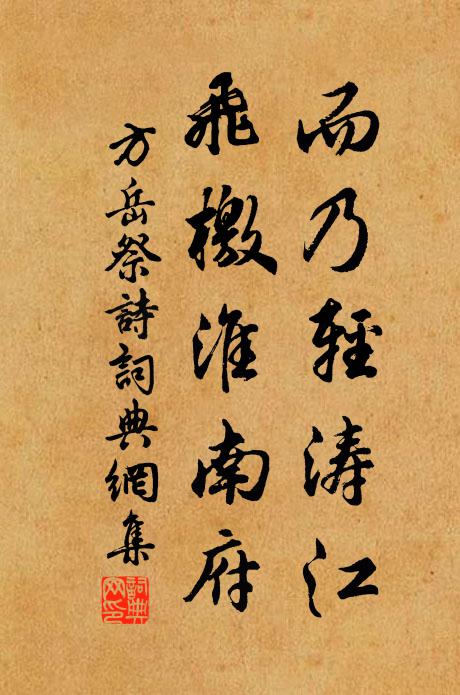 而乃輕涛江
飛檄淮南府
方岳祭詩詞典網集
詞典网印